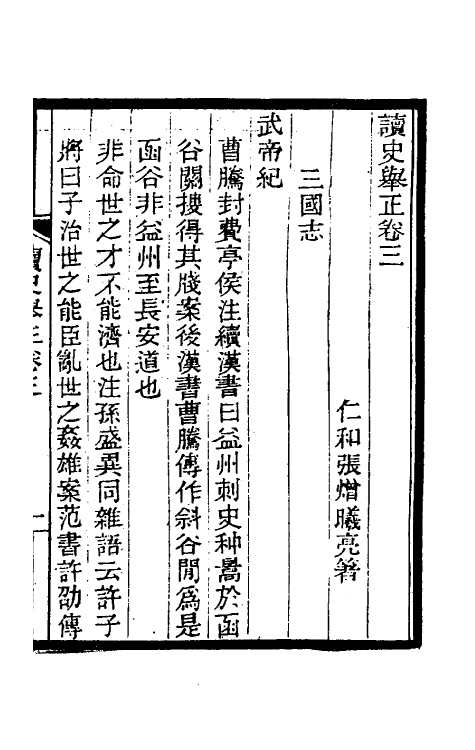 讀史舉正卷三
仁和張熷曦亮箸
三國志
武帝紀
曹騰封費亭侯注續漢書曰益州刺史种暠於函
谷關搜得其牋案後漢書曹騰傳作斜谷閒爲是
函谷非益州至長安道也
非命世之才不能濟也注孫盛異同雜語云許子
將曰子治世之能臣亂世之姦雄案范書許劭傳
讀史舉正卷三
一